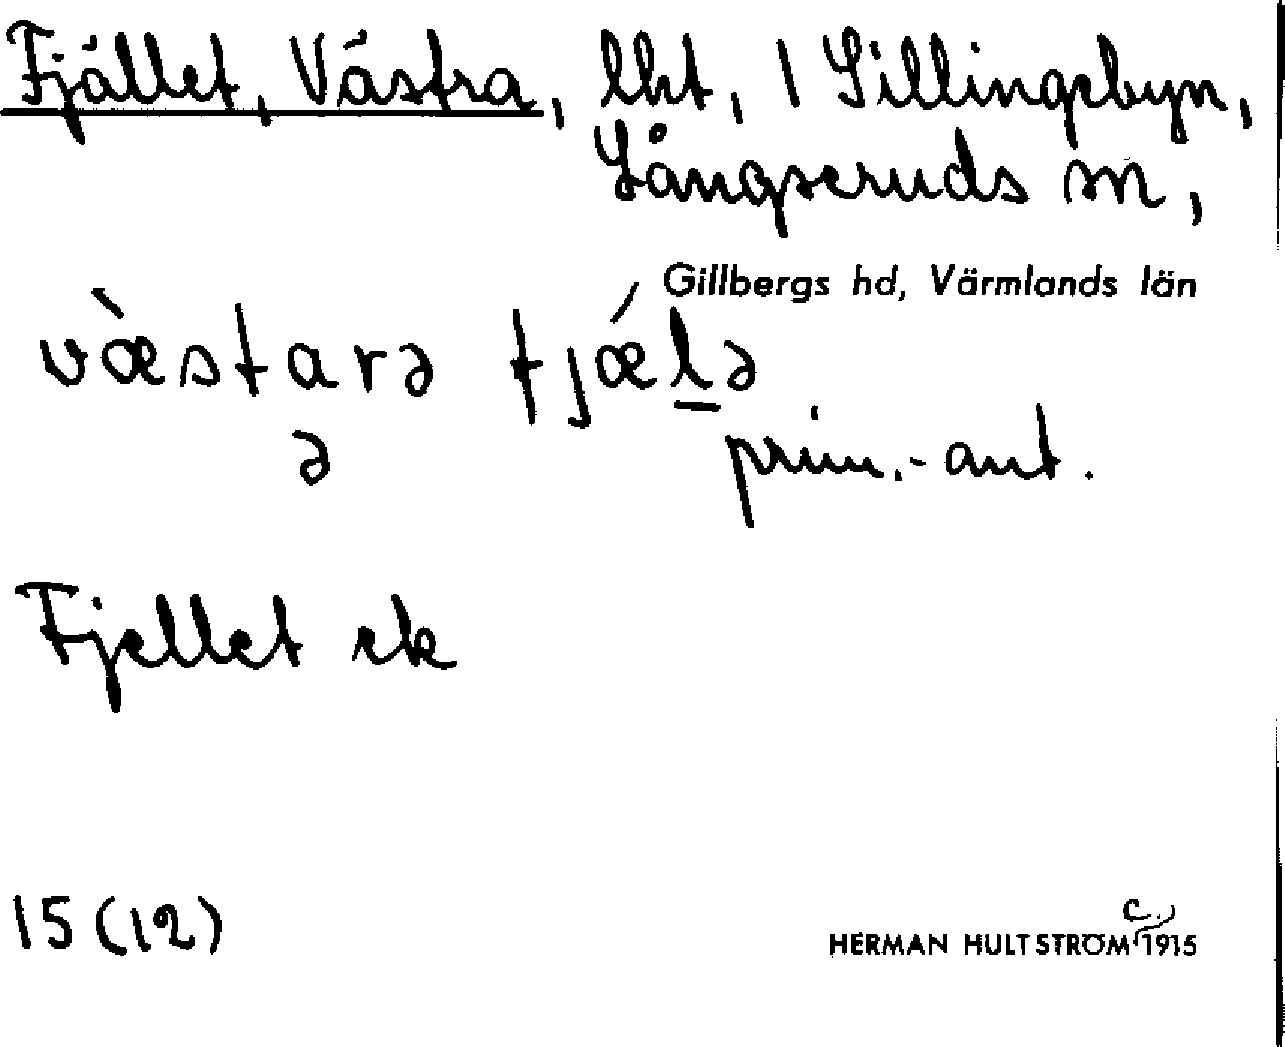 Fjället, Västra, lht, 1 Sillingebyn,
Långseruds sn,
Gillbergs hd, Värmlands län
væ̀starə fjǽlə
ə
prim.-ant.
Fjellet ek
15 (12)
c.
HERMAN HULTSTRÖM 1915